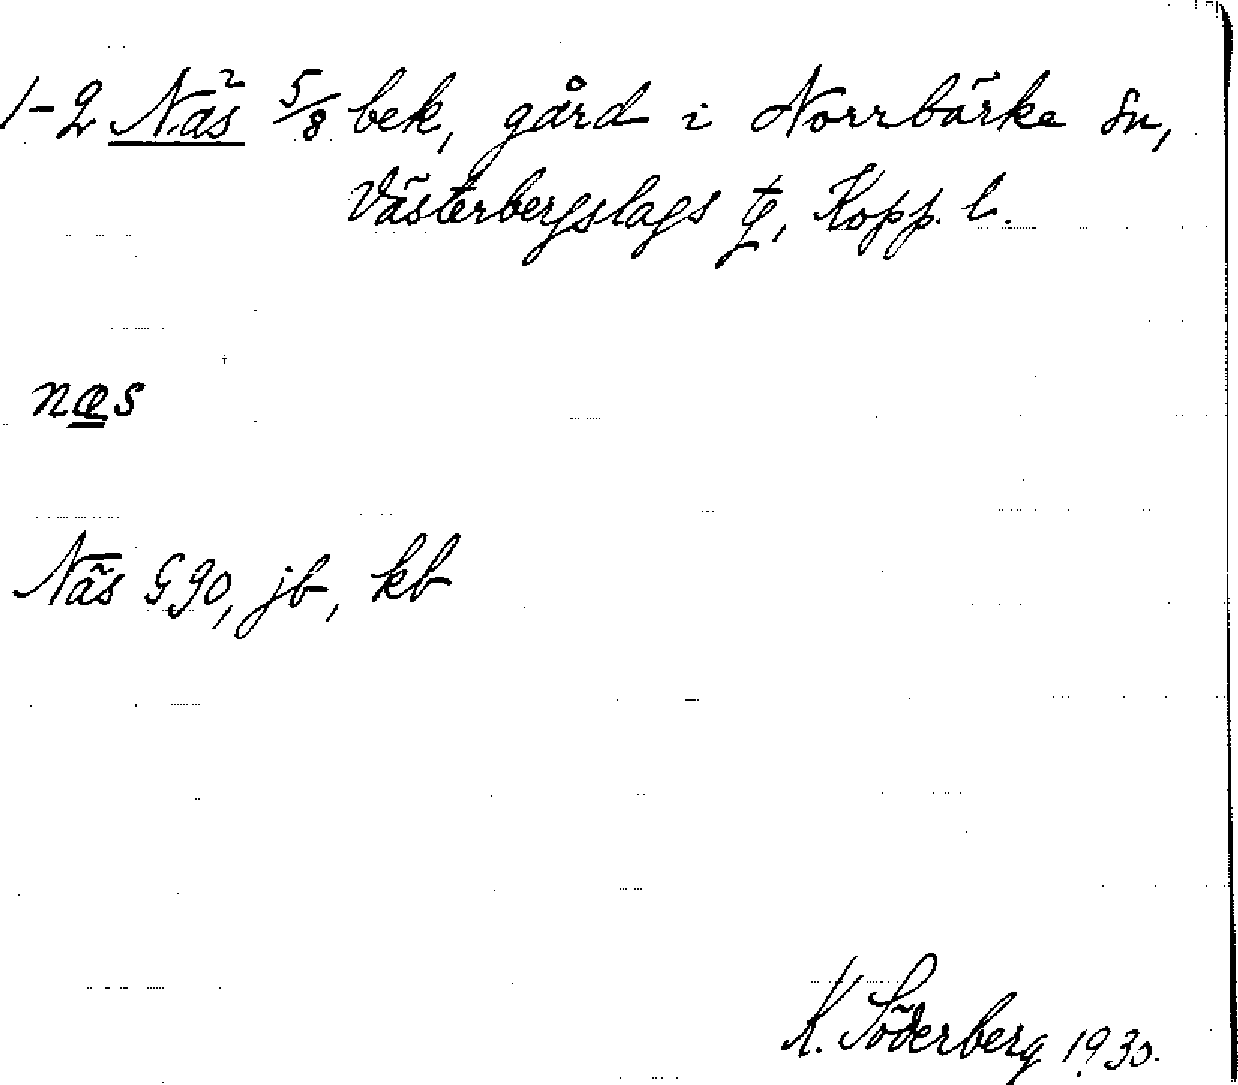 1-2 Näs 5/8 bek, gård i Norrbärke sn,
Västerbergslags tg, Kopp. l.
næs
Näs G90, jb, kb
K. Söderberg 1930.